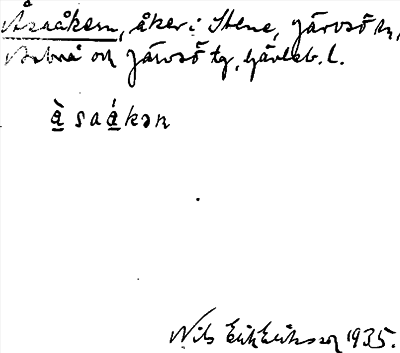 Åsaåkern, åker i Stene, Järvsö sn,
Arbrå och Järvsö tg, Gävleb. l.
å̀saǻkən
Nils Erik Eriksson 1935.